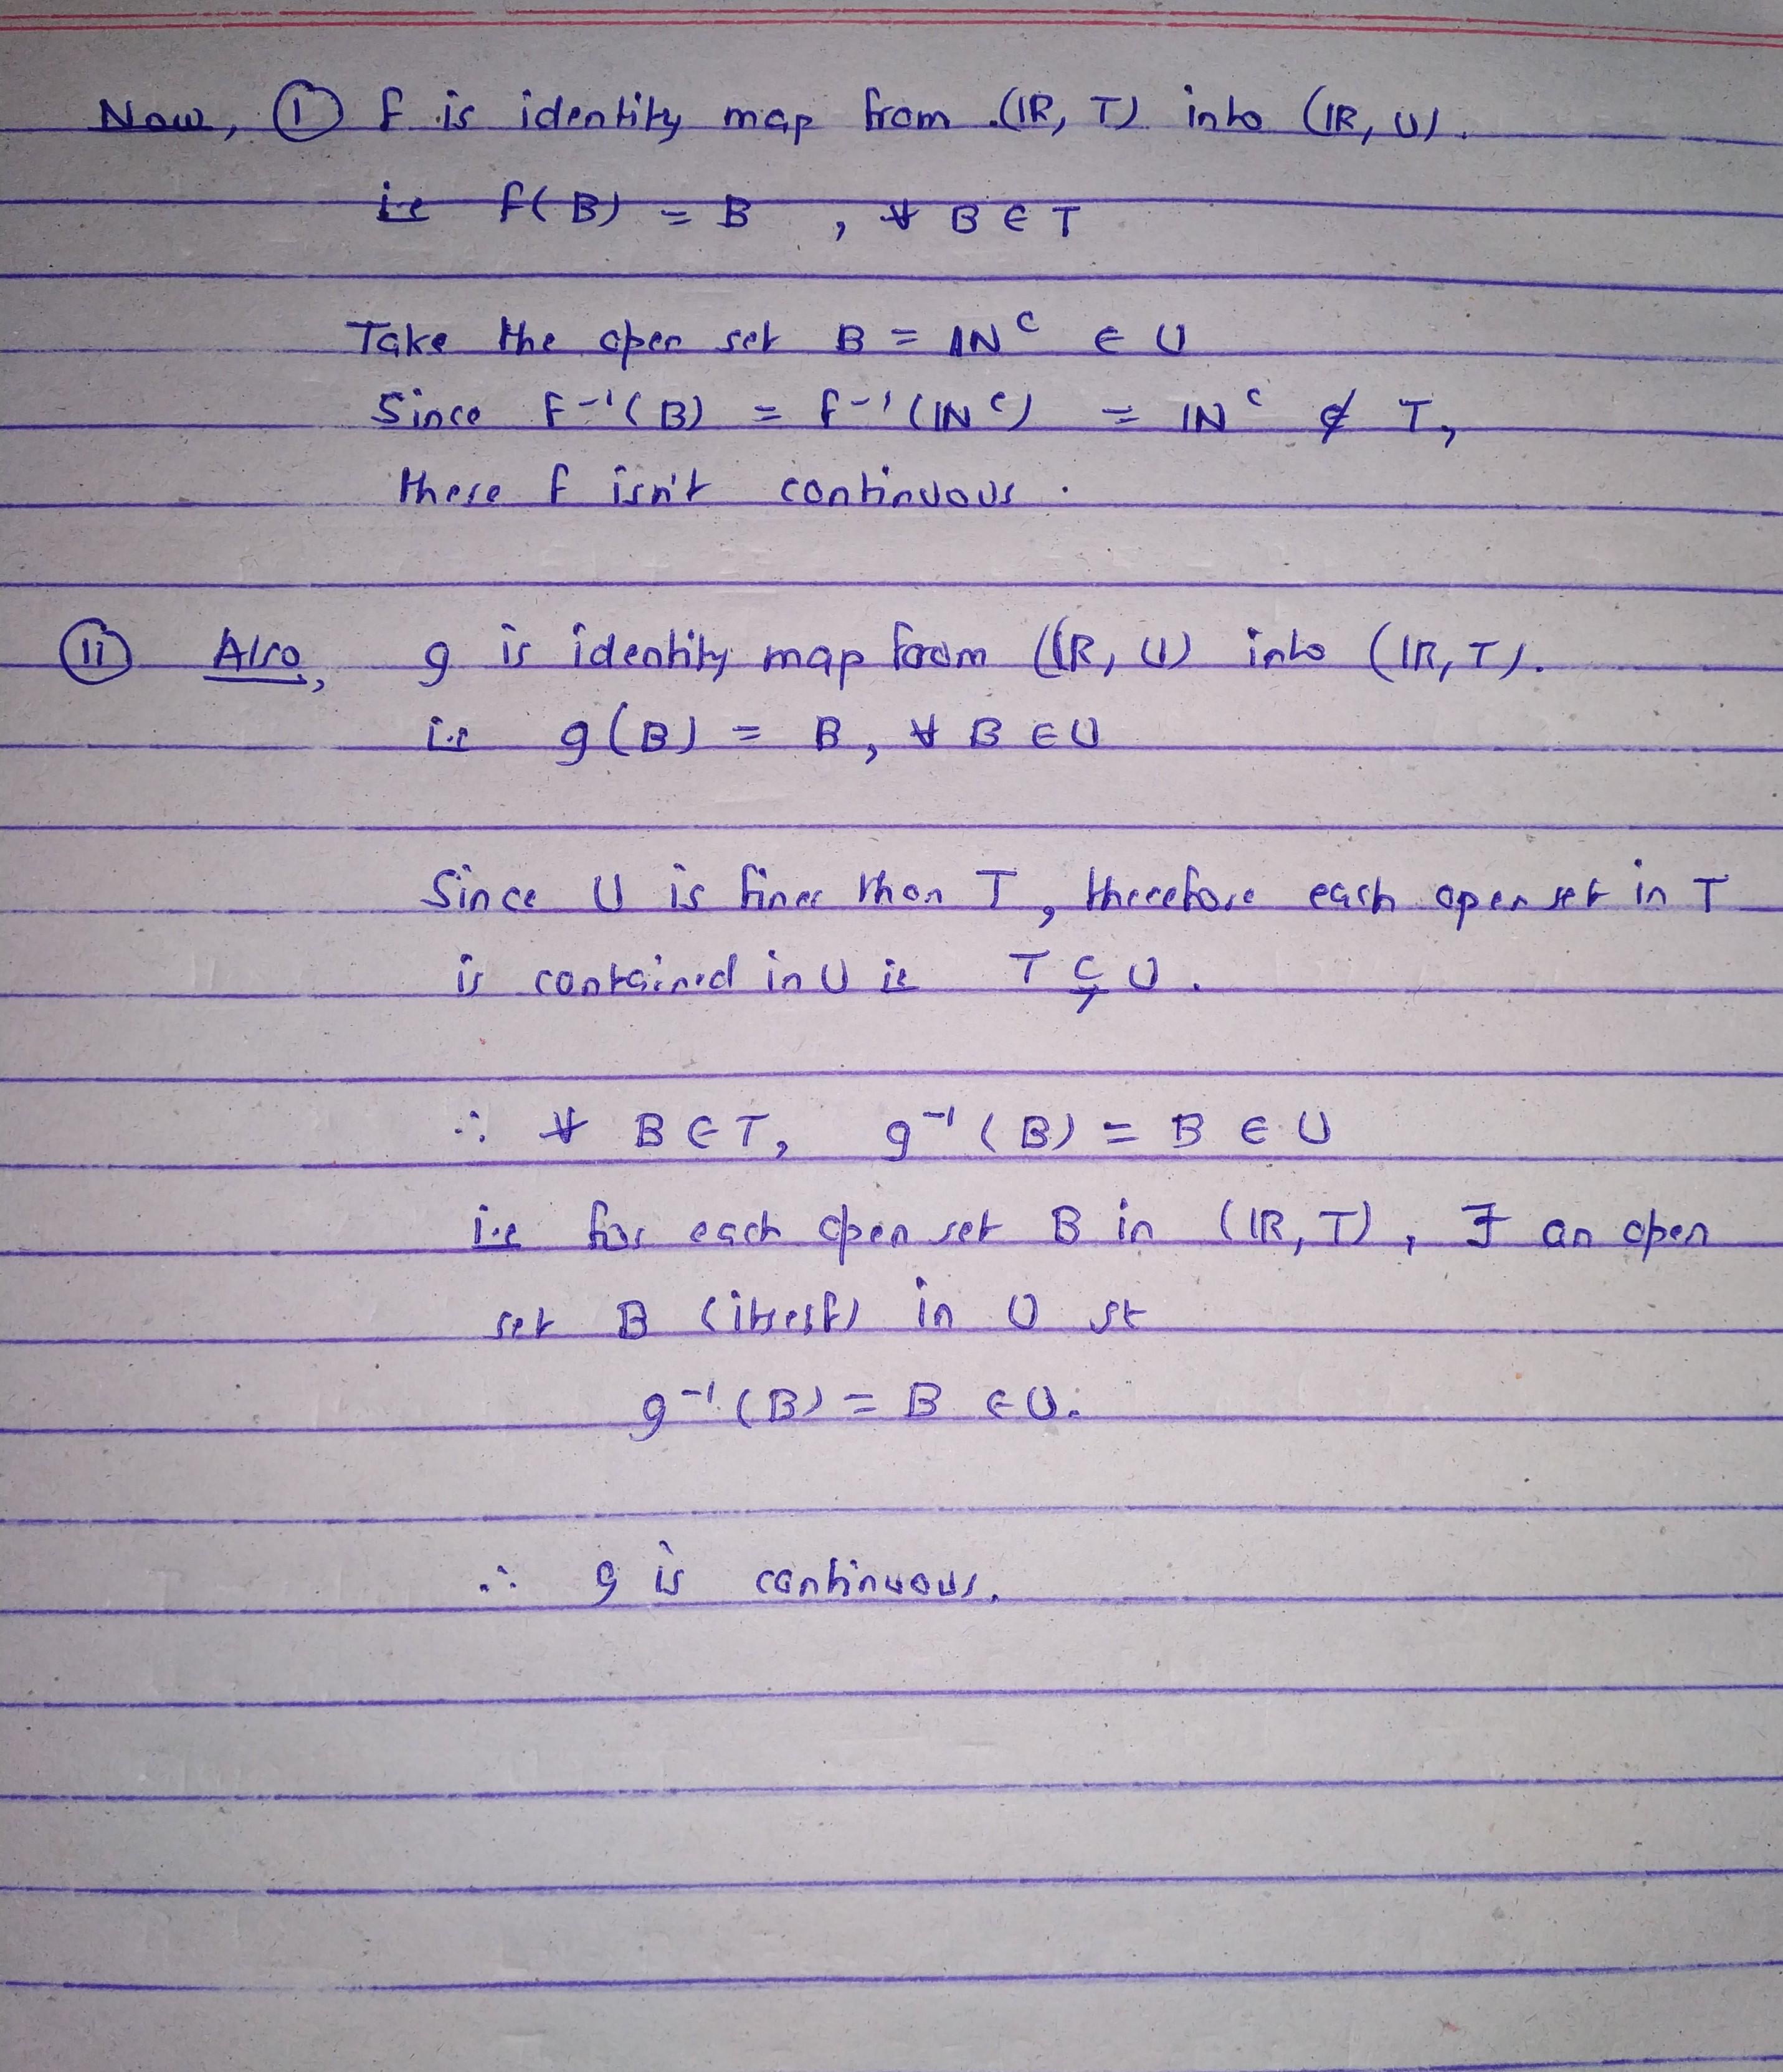 Now, ① f is identity map from (ℝ, T) into (ℝ, U).
ie f(B) = B , ∀ B ∈ T
Take the open set B = ℕᶜ ∈ U
Since f⁻¹(B) = f⁻¹(ℕᶜ) = ℕᶜ ∉ T,
there f isn't continuous.
⑪ Also, g is identity map from (ℝ, U) into (ℝ, T).
i.e g(B) = B, ∀ B ∈ U
Since U is finer than T, therefore each open set in T
is contained in U ie T ⊊ U.
∴ ∀ B ∈ T, g⁻¹(B) = B ∈ U
i.e for each open set B in (ℝ, T), ∃ an open
set B (itself) in U st
g⁻¹(B) = B ∈ U.
∴ g is continuous.